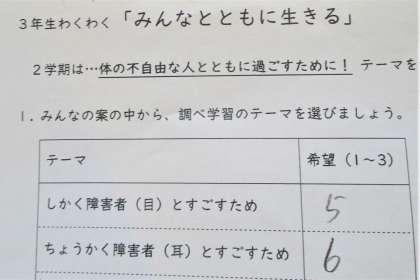 3年生わくわく「みんなとともに生きる」
2学期は…体の不自由な人とともに過ごすために! テーマを
1. みんなの案の中から、調べ学習のテーマを選びましょう。
テーマ 希望(1~3)
しかく障害者(目)とすごすため 5
ちょうかく障害者(耳)とすごすため 6